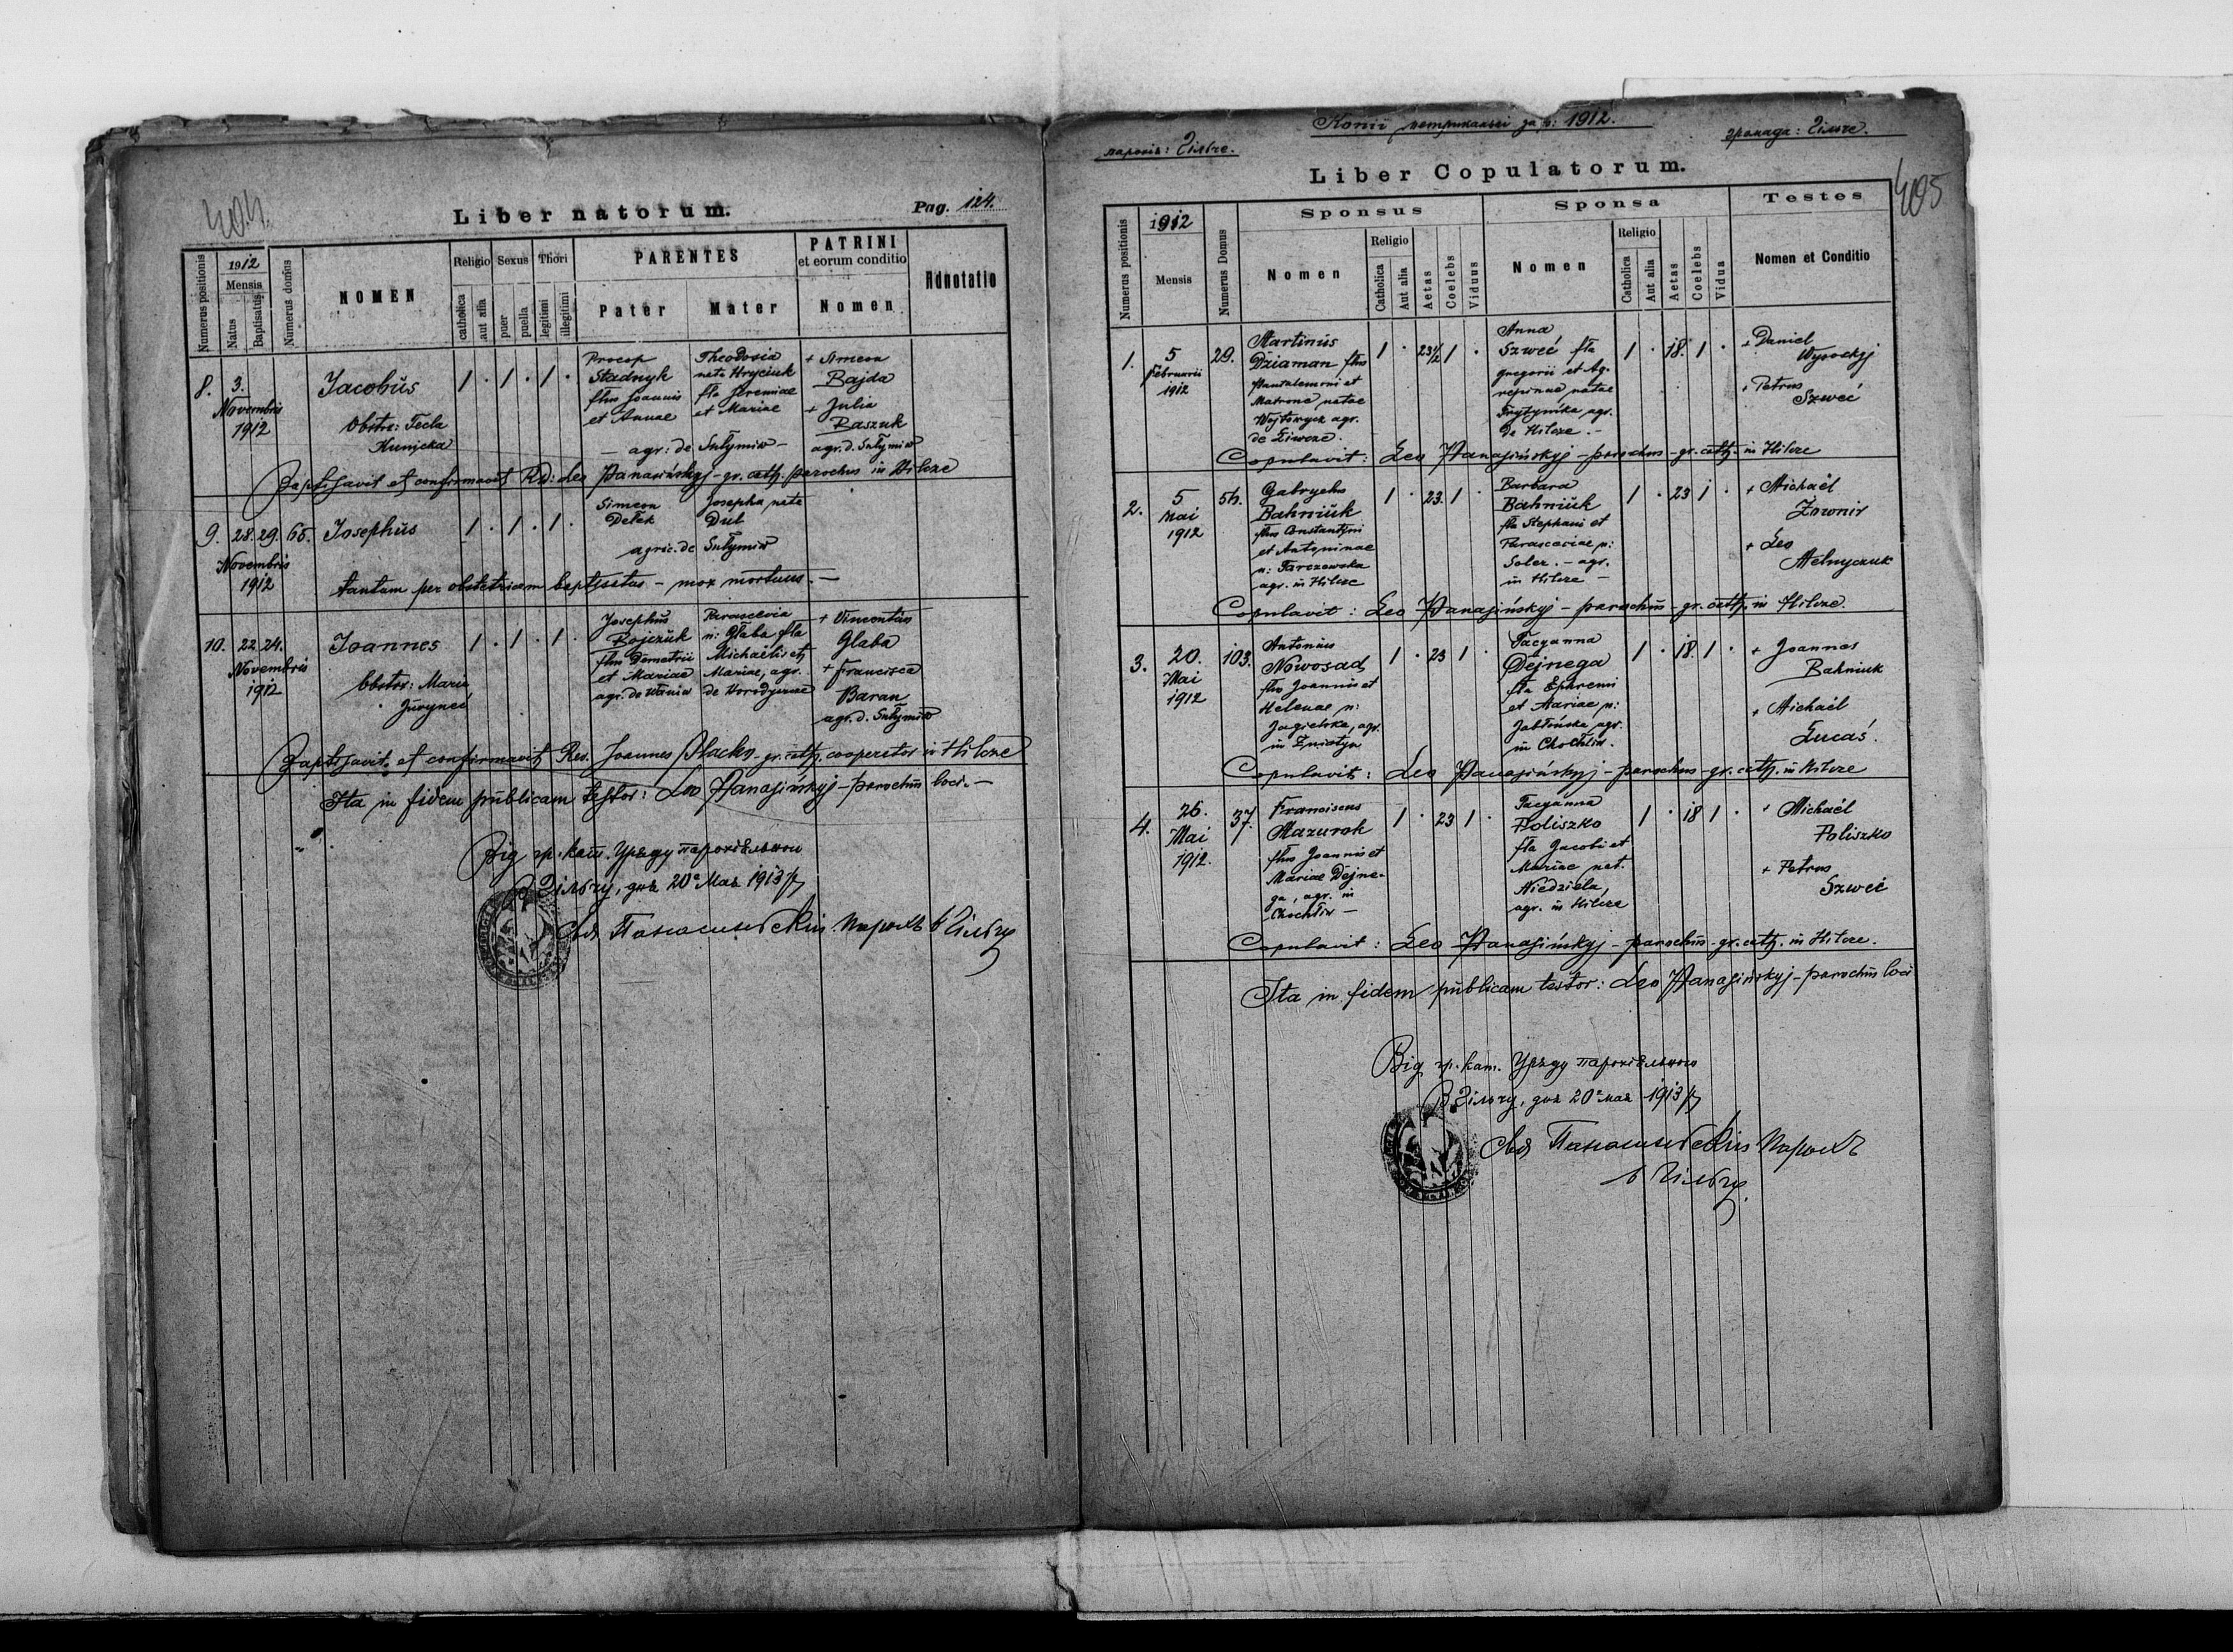 404.
Liber natorum.
Pag. 124.
Numerus positionis
1912
Mensis
Natus
Baptisatus
Numerus domus
NOMEN
Religio
catholica
aut alia
Sexus
puer
puella
Thori
legitimi
illegitimi
PARENTES
Pater
Mater
PATRINI
et eorum conditio
Nomen
Adnotatio
8.
3.
Novembris
1912
Jacobus
Obstr: Tecla
1 . 1 . 1 .
Procop
Stadnyk
flius Joannis
et Annae
Theodosia
nata Hryciuk
fla Jeremiae
et Mariae
— agr: de Sułymiw —
+ Simeon
Bajda
+ Julia
Baszuk
agr. d. Sułymiw
Baptisavit et confirmavit Rd: Leo Panasińskyj - gr. cath. parochus in Hilcze
9.
28. 29.
Novembris
1912
65.
Josephus
1 . 1 . 1 .
Simeon
Detek
Josepha nata
Dub
agric. de Sułymiw
tantum per obstetricem baptisatus - mox mortuus. —
10.
22. 24.
Novembris
1912
Joannes
Obstr: Maria
Jurynec
1 . 1 . 1 .
Josephus
Bojczuk
flius Demetrii
et Mariae
agr. de Waniw
Parascevia
n: Głaba fla
Michaëlis et
Mariae, agr.
de Horodyszcze
+ Vincentius
Glaba
+ Francisca
Baran
agr. d. Sułymiw
Baptisavit et confirmavit Rev. Joannes gr. cath. cooperator in Hilcze
Ita in fidem publicam testor: Leo Panasińskyj - parochus loci. —
Від гр. кат. Уряду парохіяльного
В Гільчу, дня 20 Мая 1913 р
Лев Панасиньский парох в Гільчу
405
Копії метрикальні за р: 1912.
парохія: Гільче.
громада: Гільче.
Liber Copulatorum.
Numerus positionis
1912
Mensis
Numerus Domus
Sponsus
Nomen
Religio
Catholica
Aut alia
Aetas
Coelebs
Viduus
Sponsa
Nomen
Religio
Catholica
Aut alia
Aetas
Coelebs
Vidua
Testes
Nomen et Conditio
1.
5
Februarii
1912
29.
Martinus
Dziaman flius
Pantalemoni et
Matronae natae
Wojtowycz agr.
de Liwcze.
1 . 23½ 1 .
Anna
Szweć fla
Gregorii et Ag-
repinae natae
agr.
de Hilcze. —
1 . 18. 1 .
+ Daniel
Wysockyj
+ Petrus
Szweć
Copulavit: Leo Panasińskyj - parochus - gr. cath. in Hilcze
2.
5
Mai
1912
54.
Gabryelus
Bahniuk
flius Constantini
et Antoninae
n: Tarczewska
agr. in Hilcze
1 . 23. 1 .
Barbara
Bahniuk
fla Stephani et
Parasceviae n:
Soler. - agr.
in Hilcze —
1 . 23 1 .
+ Michaël
Zownir
+ Leo
Melnyczuk
Copulavit: Leo Panasińskyj - parochus - gr. cath. in Hilcze.
3.
20.
Mai
1912
103.
Antonius
Nowosad
flius Joannis et
Helenae n:
Jagielska, agr.
in Zniatyn
1 . 23 1 .
Tacyanna
Dejnega
fla Ephremi
et Mariae n:
Jabłońska agr.
in Chochłiw.
1 . 18. 1 .
+ Joannes
Bahniuk
+ Michaël
Lucaś.
Copulavit: Leo Panasińskyj - parochus - gr. cath. in Hilcze
4.
26.
Mai
1912.
37.
Franciscus
Mazurok
flius Joannis et
Mariae Dejne-
ga, agr. in
Chochłiw —
1 . 23 1 .
Tacyanna
Poliszko
fla Jacobi et
Mariae nat.
Niedziela,
agr. in Hilcze
1 . 18 1 .
+ Michaël
Poliszko
+ Petrus
Szweć
Copulavit: Leo Panasińskyj - parochus - gr. cath. in Hilcze.
Ita in fidem publicam testor: Leo Panasińskyj - parochus loci
Від гр. кат. Уряду парохіяльного
В Гільчу, дня 20 мая 1913 р
Лев Панасиньский парох
в Гільчу.